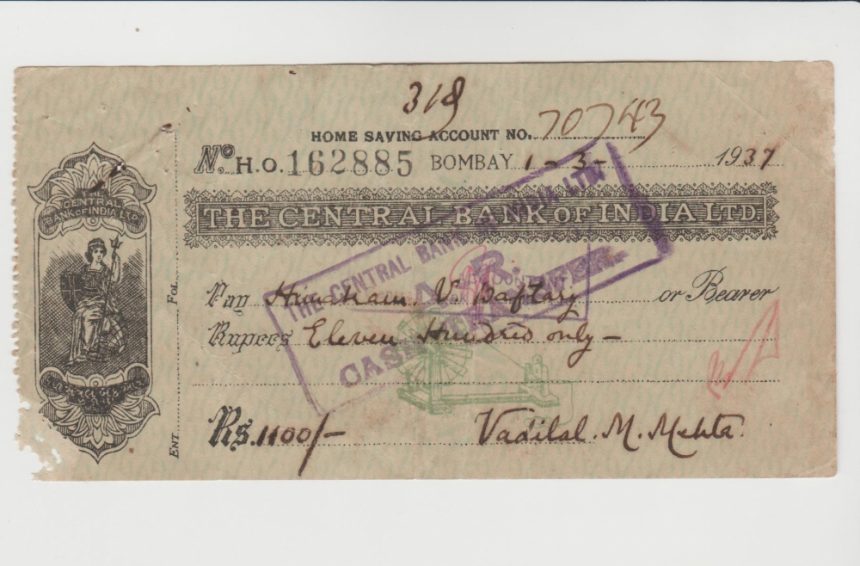 318
HOME SAVING ACCOUNT NO. 70743
No. H.O. 162885 BOMBAY 1-3- 1937
THE CENTRAL BANK OF INDIA LTD.
THE CENTRAL BANK OF INDIA LTD.
THE CENTRAL BANK OF INDIA LTD.
CASH TRANSFER.
Pay V. Baftary or Bearer
Rupees Eleven Hundred only —
Rs. 1100/-
Vadilal. M. Mehta.
FOL.
ENT.